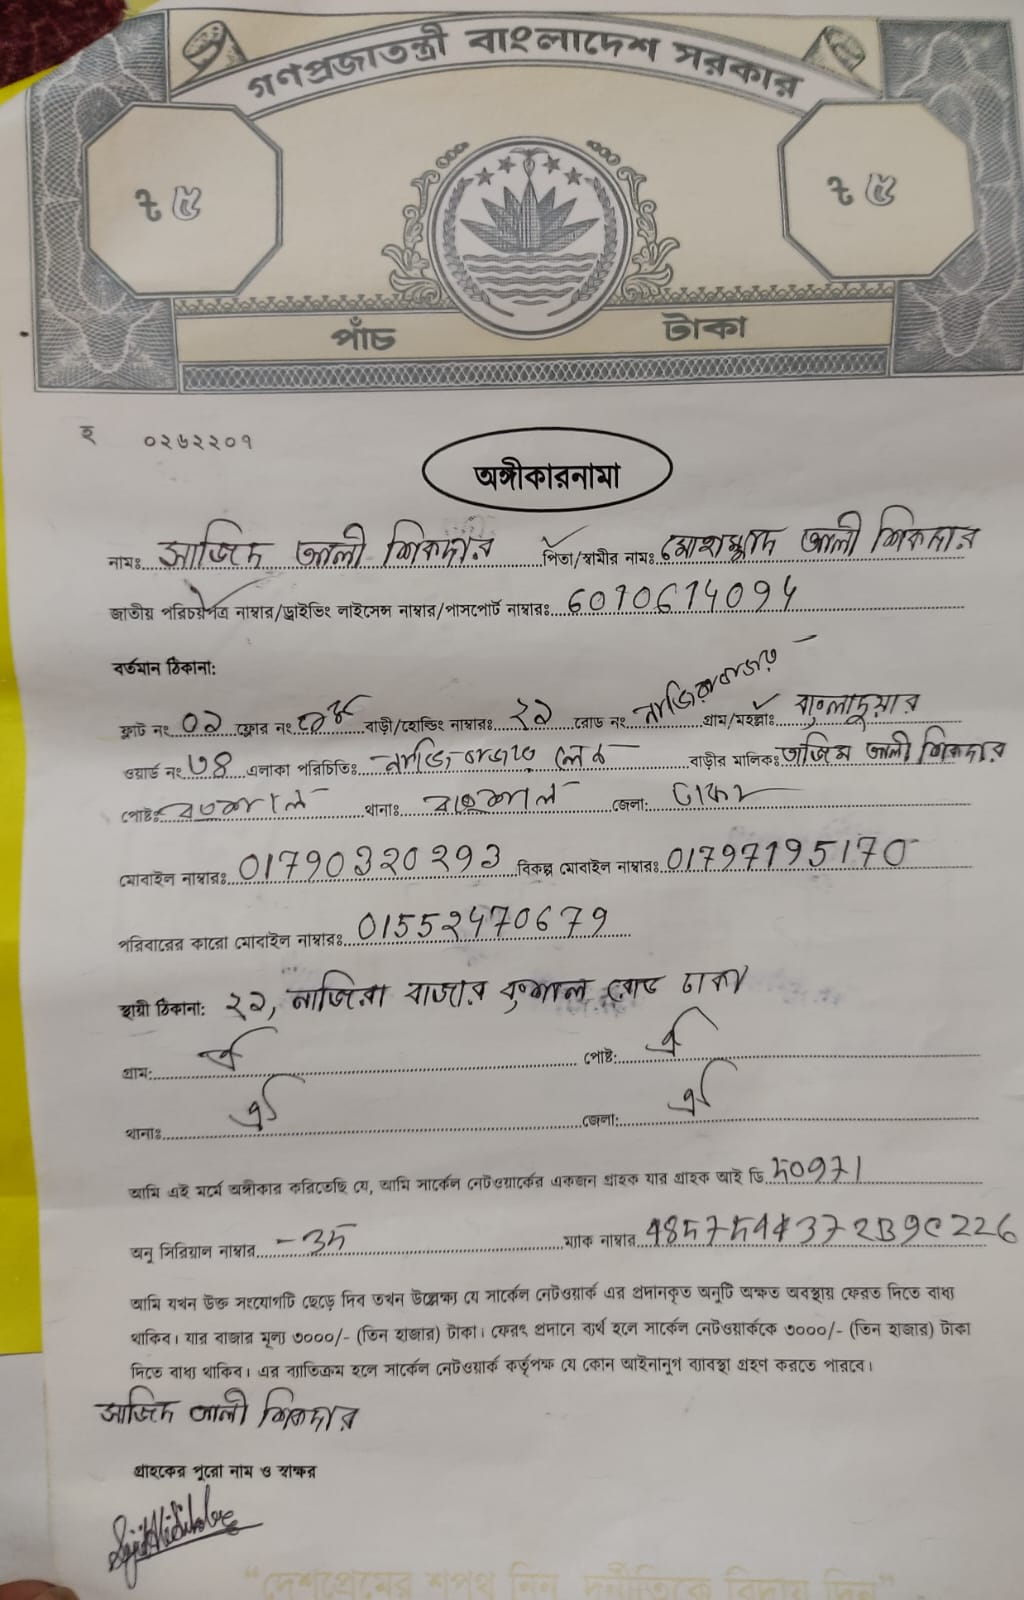 গণপ্রজাতন্ত্রী বাংলাদেশ সরকার
৳ ৫ ৳ ৫
পাঁচ টাকা
হ ০২৬২২০৭
অঙ্গীকারনামা
নামঃ সাজিদ আলী শিকদার পিতা/স্বামীর নামঃ মোহাম্মাদ আলী শিকদার
জাতীয় পরিচয়পত্র নাম্বার/ড্রাইভিং লাইসেন্স নাম্বার/পাসপোর্ট নাম্বারঃ 6010674094
বর্তমান ঠিকানা:
ফ্লাট নং ০২ ফ্লোর নং বাড়ী/হোল্ডিং নাম্বারঃ ২২ রোড নং নাজিরাবাজার গ্রাম/মহল্লাঃ বাংলাদুয়ার
ওয়ার্ড নং ৩৪ এলাকা পরিচিতিঃ লেন বাড়ীর মালিকঃ আজিম আলী শিকদার
পোষ্টঃ বংশাল থানাঃ বংশাল জেলা: ঢাকা
মোবাইল নাম্বারঃ 01790320293 বিকল্প মোবাইল নাম্বারঃ 01797195170
পরিবারের কারো মোবাইল নাম্বারঃ 01552470679
স্থায়ী ঠিকানা: ২২, নাজিরা বাজার বংশাল রোড ঢাকা
গ্রাম: ঐ পোষ্ট: ঐ
থানাঃ ঐ জেলা: ঐ
আমি এই মর্মে অঙ্গীকার করিতেছি যে, আমি সার্কেল নেটওয়ার্কের একজন গ্রাহক যার গ্রাহক আই ডি 50971
অনু সিরিয়াল নাম্বার -35 ম্যাক নাম্বার
আমি যখন উক্ত সংযোগটি ছেড়ে দিব তখন উল্লেক্ষ্য যে সার্কেল নেটওয়ার্ক এর প্রদানকৃত অনুটি অক্ষত অবস্থায় ফেরত দিতে বাধ্য
থাকিব। যার বাজার মূল্য ৩০০০/- (তিন হাজার) টাকা। ফেরৎ প্রদানে ব্যর্থ হলে সার্কেল নেটওয়ার্ককে ৩০০০/- (তিন হাজার) টাকা
দিতে বাধ্য থাকিব। এর ব্যতিক্রম হলে সার্কেল নেটওয়ার্ক কর্তৃপক্ষ যে কোন আইনানুগ ব্যাবস্থা গ্রহণ করতে পারবে।
সাজিদ আলী শিকদার
গ্রাহকের পুরো নাম ও স্বাক্ষর
"দেশপ্রেমের শপথ নিন, দুর্নীতিকে বিদায় দিন"